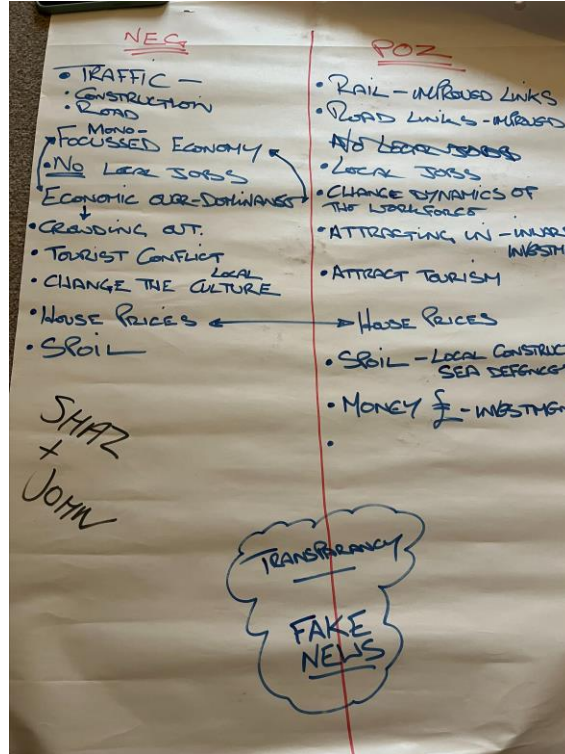 NEG
• TRAFFIC –
• CONSTRUCTION
• ROAD
MONO-
FOCUSSED ECONOMY
• NO LOCAL JOBS
ECONOMIC OVER-DOMINANCE
• CROWDING OUT.
• TOURIST CONFLICT
• CHANGE THE LOCAL CULTURE
• HOUSE PRICES
• SPOIL
SHAZ
+
JOHN
POZ
• RAIL – IMPROVED LINKS
• ROAD LINKS – IMPROVED
NO LOCAL JOBS
• LOCAL JOBS
• CHANGE DYNAMICS OF
THE WORKFORCE
• ATTRACTING IN – INWAR
INVESTM
• ATTRACT TOURISM
HOUSE PRICES
• SPOIL – LOCAL CONSTRUC
SEA DEFENCE
• MONEY £ – INVESTMEN
•
TRANSPARANCY
FAKE
NEWS